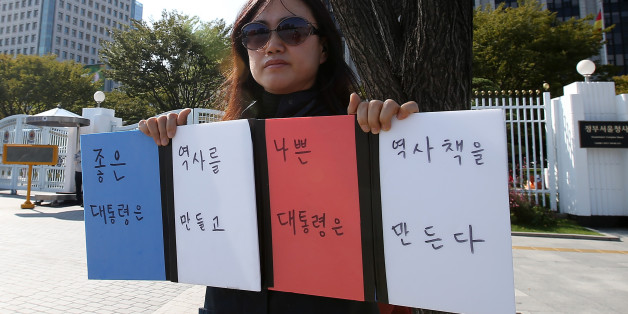 좋은
대통령은
역사를
만들고
나쁜
대통령은
역사책을
만든다
정부서울청사